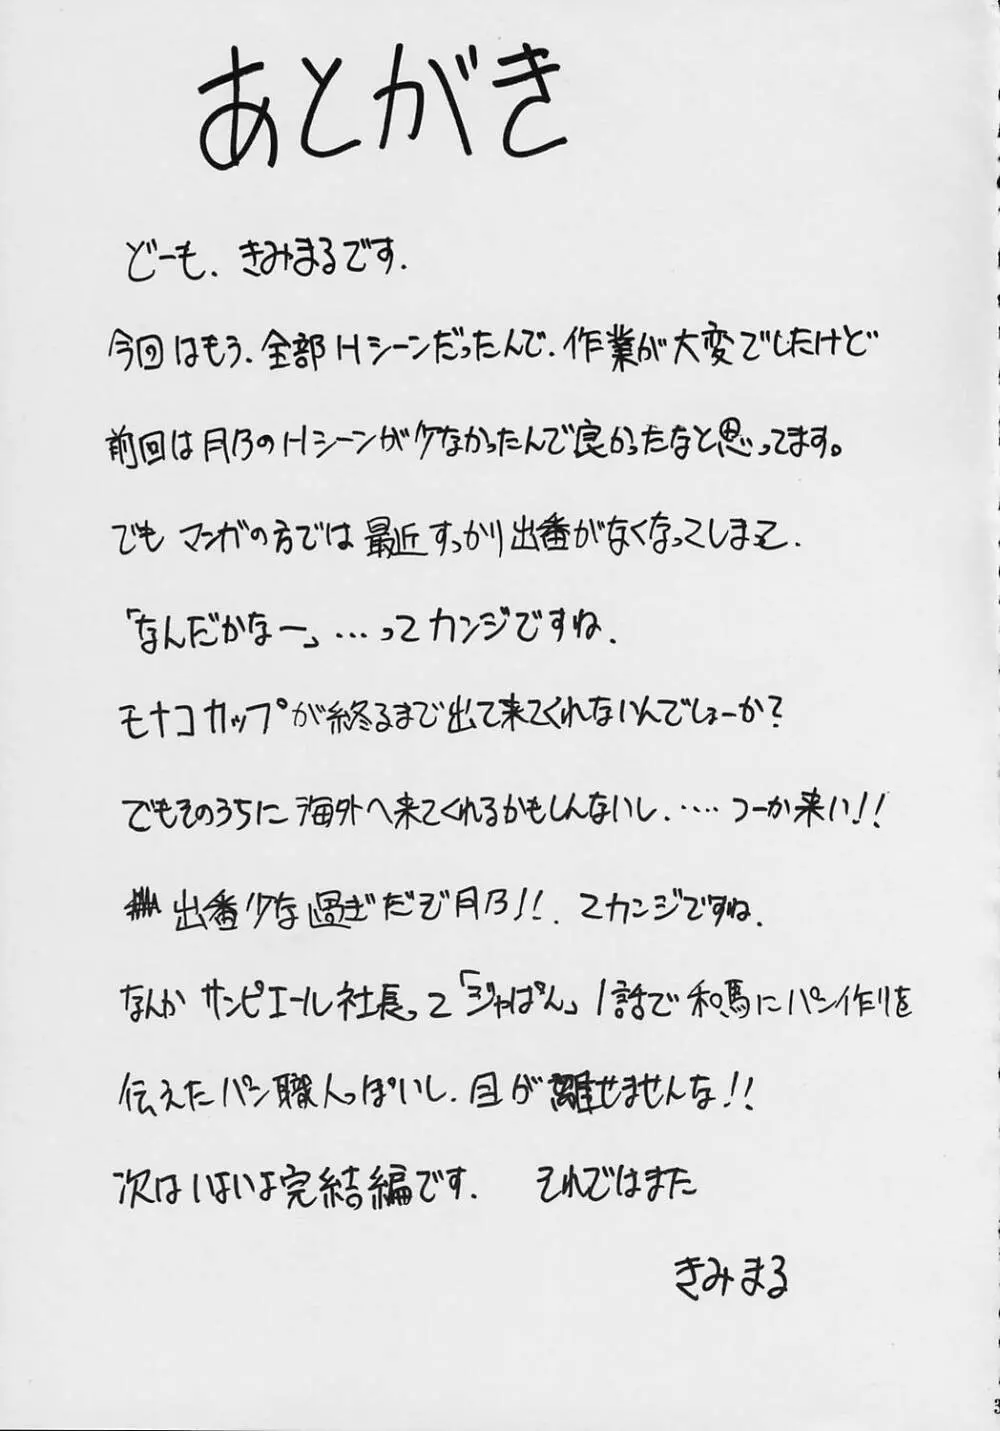 あとがき
どーも、きみまるです。
今回はもう、全部Hシーンだったんで、作業が大変でしたけど
前回は月乃のHシーンが少なかったんで良かったなと思ってます。
でもマンガの方では最近すっかり出番がなくなってしまって、
「なんだかなー」…ってカンジですね。
モナコカップが終るまで出て来てくれないんでしょーか?
でもそのうちに海外へ来てくれるかもしんないし、‥‥つーか来い!!
出番少な過ぎだぞ月乃!!、てカンジですね。
なんかサンピエール社長って「ジャぱん」1話で和馬にパン作りを
伝えたパン職人っぽいし、目が離せませんな!!
次はいよいよ完結編です。 それではまた
きみまる